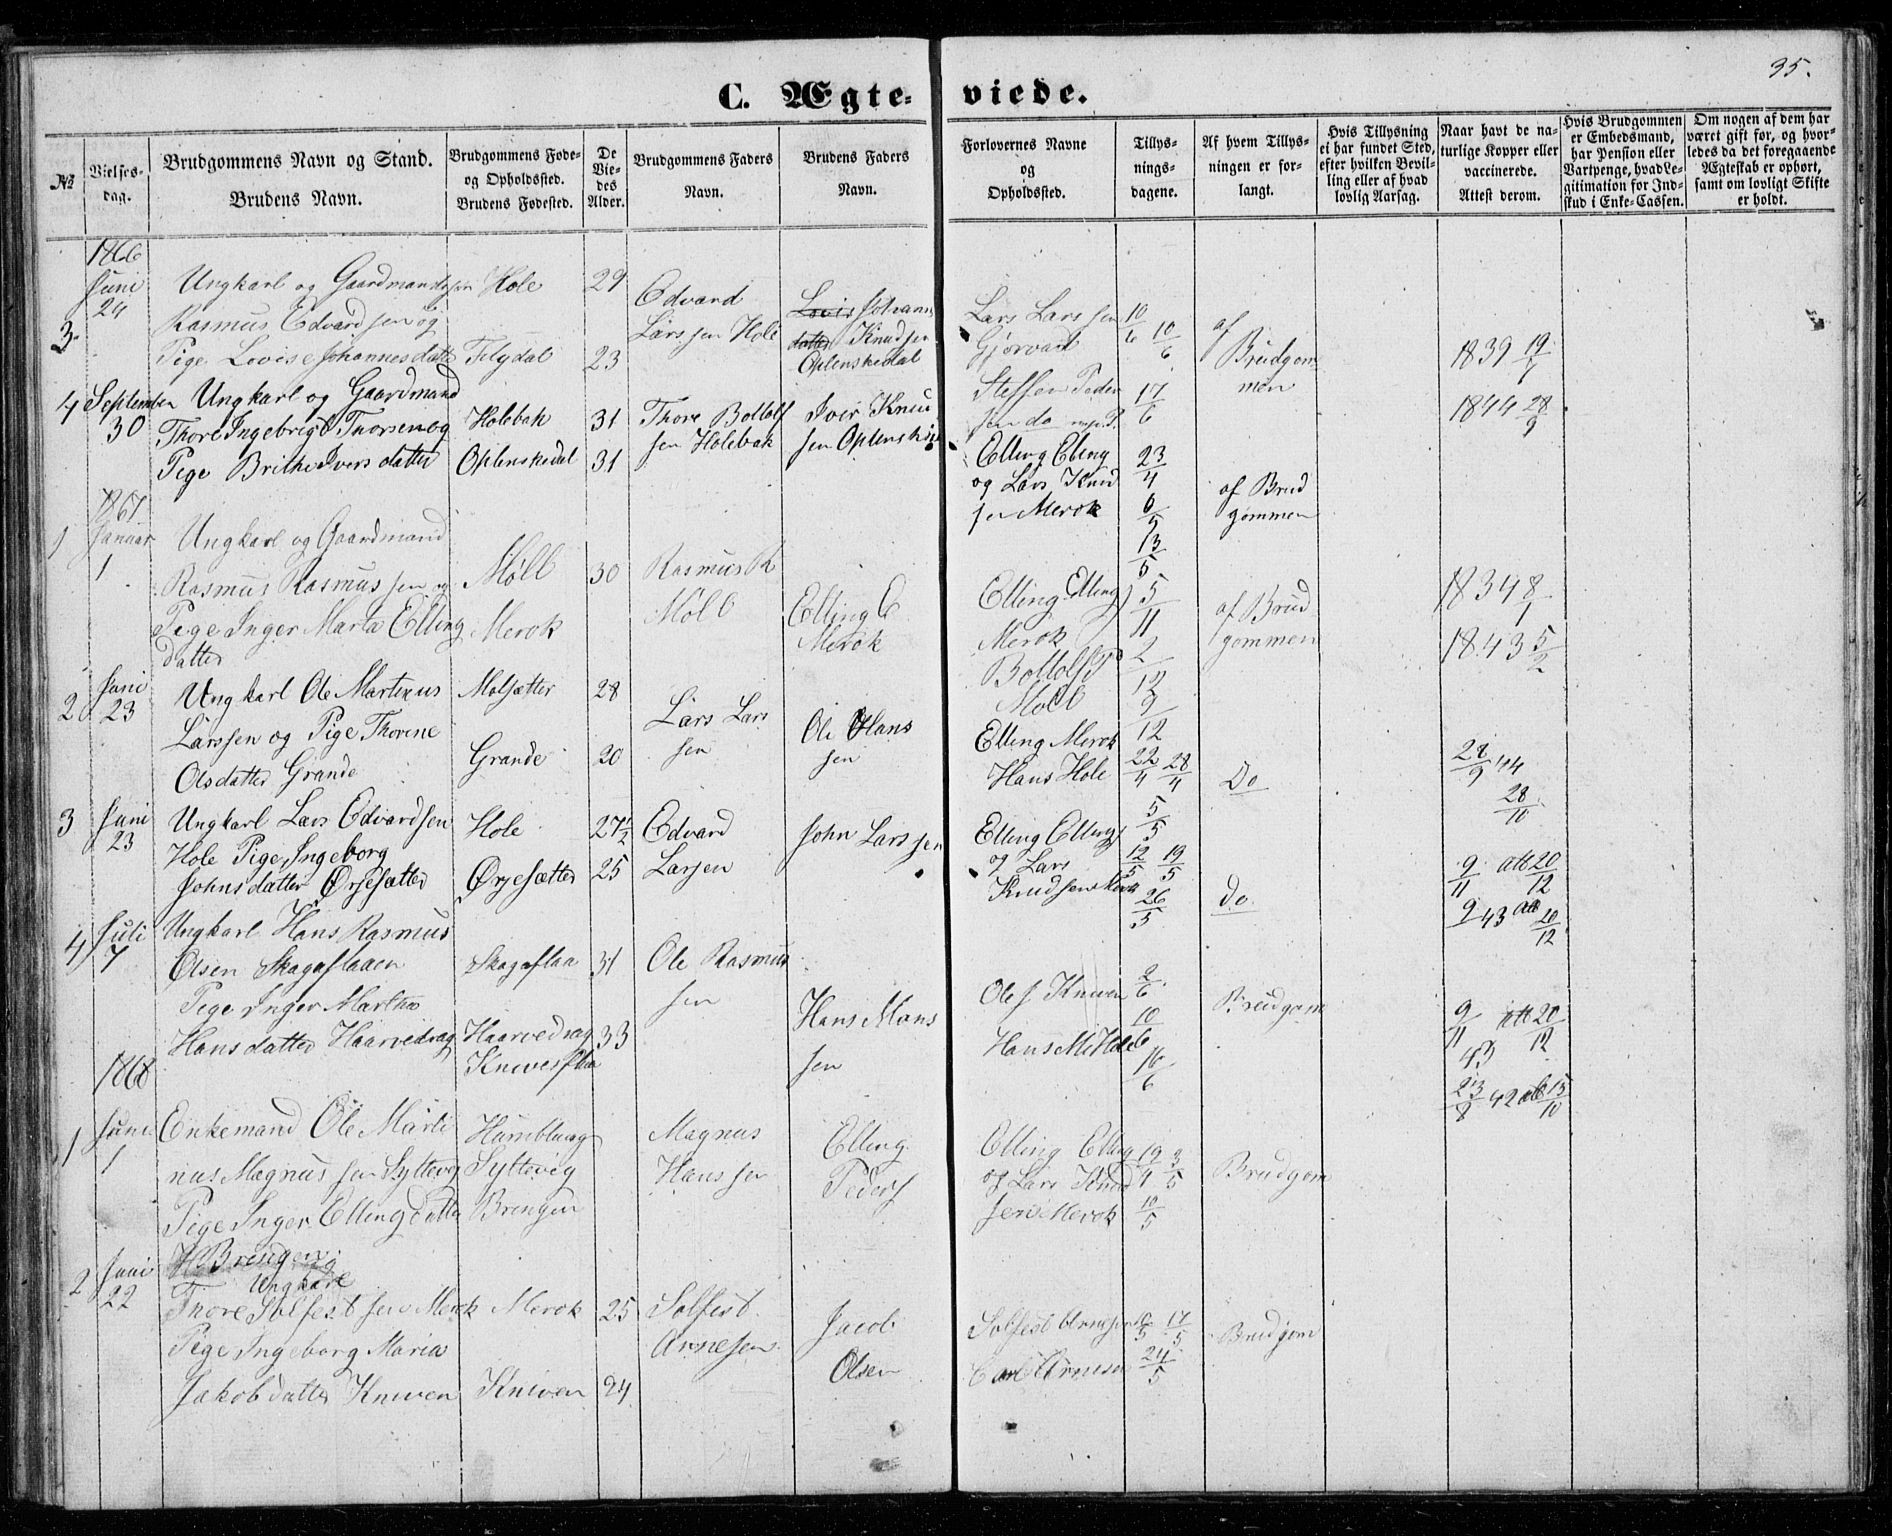 35.
C. Ægte-viede.
No
Vielses-dag.
Brudgommens Navn og Stand.
Brudens Navn.
BrudgommensFøde-
og Opholdssted.
Brudens Fødested.
De Vie-des Alder.
Brudgommens Faders
Navn.
Brudens Faders
Navn.
Forlovernes Navne
og
Opholdssted.
Tillys-
nings-
dagene.
Af hvem Tillys-
ningen er for-
langt.
Hvis Tillysning
ei har fundet Sted,
efter hvilken Bevil-
ling eller af hvad
lovlig Aarsag.
Naar havt de na-
turlige Kopper eller
vaccinerede.
Attest derom.
Hvis Brudgommen
er Embedsmand,
har Pension eller
Vartpenge, hvad Le-
gitimation for Ind-
skud i Enke-Cassen.
Om nogen af dem har
været gift før, og hvor-
ledes da det foregaaende
Ægteskab er ophørt,
samt om lovligt Skifte
er holdt.
1866
3. Juni 24
Ungkarl og Gaardmandssøn
Rasmus Edvardsen og
Pige Lovise Johannesdatter
Hole
29
23
Edvard
Larssen Hole
Knudsen
Oplenskedal
Lars Larssen
Gjørvad
Steffen Peder
sen do
10/6 10/6
17/6
af
Brudgom
men
1839 19/7
1844 28/9
4 September 30
Ungkarl og Gaardmand
Thore Ingebrigt Thorsen og
Pige Brithe Iversdatter
Holebak
Oplenskedal
31
31
Thore Bottolf
sen Holebak
Iver Knud
sen Oplensked
Elling Elling
og Lars Knud
sen Merok
23/4
6/5
13/5
af Brud
gommen
1867
1 Januar 1
Ungkarl og Gaardmand
Rasmus Rasmussen og
Pige Inger Marta Elling
datter
Møll
Merok
30
Rasmus R
Møll
Elling E
Merok
Elling Ellings
Merok
Bottolf P
Møll
5/11
2/12
9/12
af Brud
gommen
1834 8/1
1843 5/2
2 Juni 23
Ungkarl Ole Martinus
Larssen og Pige Thorine
Olsdatter Grande
Molsætter
Grande
28
20
Lars Lars
sen
Ole Hans
sen
Elling Merok
Hans Hole
22/4 28/4
5/5
Do
28/9 44
28/10
3 Juni 23
Ungkarl Lars Edvardsen
Hole Pige Ingeborg
Johnsdatter Ørjesætter
Hole
Ørjesætter
27 1/2
25
Edvard
Larsen
John Larssen
Elling Ellings
og Lars
Knudsen Merok
12/5 19/5
26/5
Do.
9/11 att 20/12
9 43 att 20/12
4 Juli 7
Ungkarl Hans Rasmus
Olsen Skagaflaaen
Pige Inger Martha
Hansdatter Haarvedrag
Skagaflaa
Haarvedrag
Knivesflaa
31
33
Ole Rasmus
sen
Hans Mons
sen
Ole J Kniven
Hans M Hole
2/6
10/6
16/6
Brudgom
9/11 att 20/12
43
23/8 42 att 15/10
1868
1 Juni 1
Enkemand Ole Marti
nus Magnussen Syltevig
Pige Inger Ellingdatter
Bringen
Humblung
Syltevig
Bringen
Magnus
Hanssen
Elling
Peders
Elling Elling
og Lars Knud
sen Merok
19/4 3/5
10/5
Brudgom
2 Juni 22
Ungkarl
Thore Solfestsen Merok
Pige Ingeborg Maria
Jakobdatter Kniven
Merok
Kniven
25
24
Solfest
Arnesen
Jacob
Olsen
Solfest Arnesen
Carl Arnesen
17/5
24/5
Brudgom